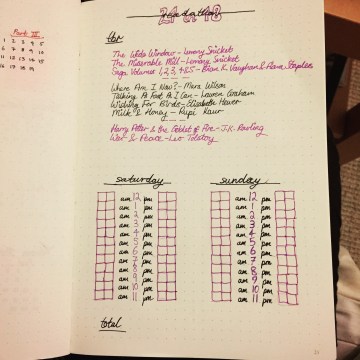 Part II
24 in 48
readathon
tbr
The Wide Window - Lemony Snicket
The Miserable Mill - Lemony Snicket
Saga Volumes 1, 2, 3, 4 & 5 - Brian K. Vaughan & Fiona Staples
Where Am I Now? - Mara Wilson
Talking As Fast As I Can - Lauren Graham
Wishing For Birds - Elisabeth Hewer
Milk & Honey - Rupi Kaur
Harry Potter & the Goblet of Fire - J.K. Rowling
War & Peace - Leo Tolstoy
saturday sunday
am 12 pm am 12 pm
am 1 pm am 1 pm
am 2 pm am 2 pm
am 3 pm am 3 pm
am 4 pm am 4 pm
am 5 pm am 5 pm
am 6 pm am 6 pm
am 7 pm am 7 pm
am 8 pm am 8 pm
am 9 pm am 9 pm
am 10 pm am 10 pm
am 11 pm am 11 pm
total